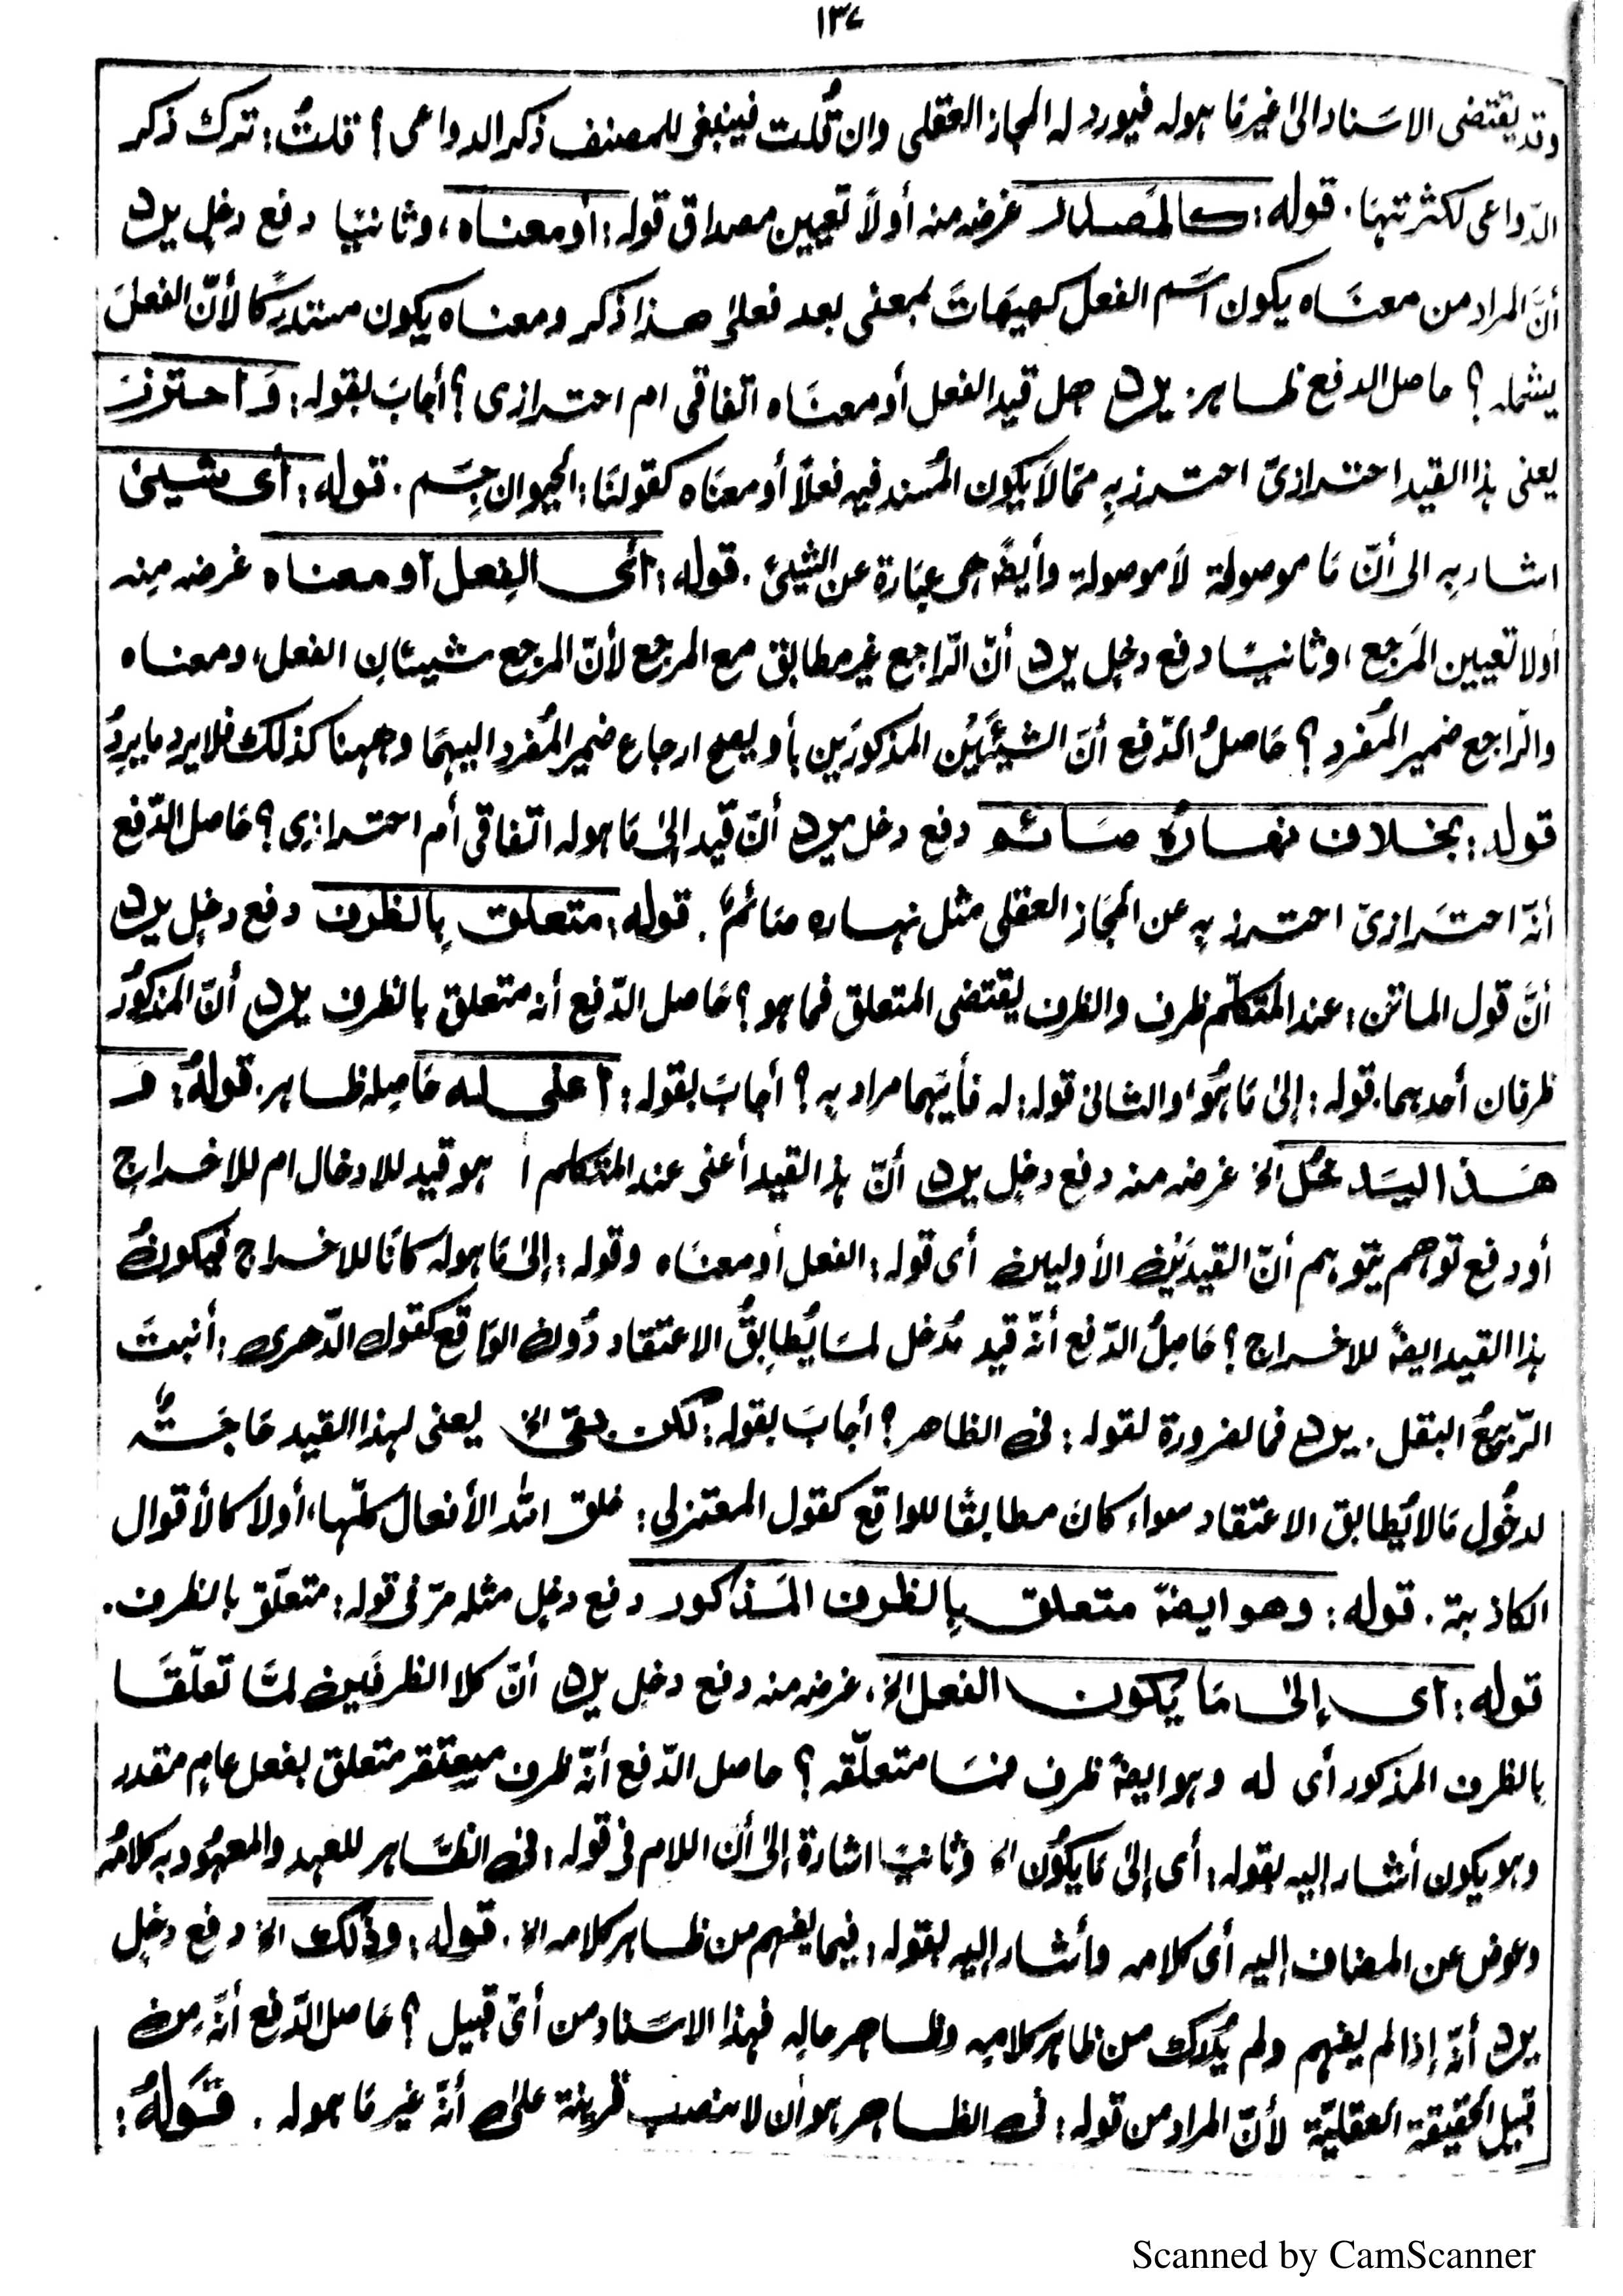 ١٣٧
وقد يقتضى الاسناد الىٰ غير مَا هوله فيورد له المجاز العقلى وان قُلت فينبغى للمصنف ذكر الدواعى ؟ قلتُ : ترك ذكر
الدّواعى لكثرتها . قوله : كالمَصدر غرضه منه أولاً تعيين مصداق قوله : أو معناه ، وثانيًا دفع دخلٍ يرد
أنَّ المراد من معنَاه يكون اسم الفعل كهيهَاتَ بمعنى بعد فعلىٰ هذا ذكر ومعناه يكون مستدركًا لأنّ الفعلَ
يشمله ؟ حاصل الدفع ظاهر : يرد هل قيد الفعل أو معنَاه اتفاقى ام احترازى ؟ أجابَ بقوله : وَاحترزَ
يعنى هذا القيد احترازىّ احترز بِه ممّا لاَ يكون المُسند فيه فعلًا أو معنَاه كقولنَا : الحيوان جِسَم . قوله : أى شيئ
اشار به الى أنّ مَا موصوفة لاَ موصولة وأيضًا هى عبَارة عن الشيئ . قوله : أى الفِعل أو معناه غرضه مِنه
أولا تعيين المَرجع ، وثانيًا دفع دخلٍ يرد أنّ الرّاجع غير مطابق مع المرجع لأنّ المرجع شيئان الفعل ، ومعناه
والرّاجع ضمير المُفرد ؟ حَاصلُ الدّفع أنّ الشيئَيْن المذكورَين بأو يصح ارجاع ضمير المُفرد اليهمَا وههنا كذلك فلا يرد ما يردُ
قوله : بخلاف نهاره صَائم دفع دخل يرد أنّ قيد إلىٰ مَا هوله اتفاقى أم احترازى ؟ حَاصل الدّفع
أنّه احتَرازىّ احترز بِه عن المجَاز العقلى مثل نهاره صَائمٌ . قوله : متعلق بِالظرف دفع دخلٍ يرد
أنَّ قول الماتن : عند المتكلّم ظرف والظرف يقتضى المتعلق فما هو ؟ حَاصل الدّفع أنه متعلق بالظرف يرد أنّ المذكورُ
ظرفان أحدهما . قوله : إلىٰ مَا هُوَ ، والثانى قوله : له فأيّهما مراد به ؟ أجابَ بقوله : اعنى له حَاصِله ظاهر . قولهُ : وَ
هَذا ليَدخُل الخ غرضه منه دفع دخلٍ يرد أنّ هذ القيد أعنى عند المتكلم أ هو قيد للادخال ام للاخراج
أو دفع توهم يتوهم أنّ القيدَيْن الأوليين أى قوله : الفعل أو معنَاه وقوله : إلىٰ مَا هوله كانَا للاخراج فيكونُ
هذا القيد ايضًا للاخراج ؟ حَاصِلُ الدّفع أنّه قيد مُدخل لمَا يُطابِقُ الاعتقاد دُونَ الوَاقع كقول الدّهرى : أنبتَ
الرّبيعُ البقل . يرد فما لضرورة لقوله : فى الظاهر ؟ أجابَ بقوله : لكن بقى الخ يعنى لهذا القيد حَاجَةٌ
لدخُول مَا لا يُطابق الاعتقاد سواء كانَ مطابقًا للواقع كقول المعتزلى : خلق الله الأفعال كلّها ، أولا كالأقوال
الكاذبة . قوله : وهو ايضًا متعلق بِالظرف المَذكور دفع دخلٍ مثله مرّ فى قوله : متعلّق بالظرف .
قوله : أى إلىٰ مَا يَكون الفعل الخ ، غرضه منه دفع دخلٍ يرد أنّ كلا الظرفَين لمّا تعلّقَا
بالظرف المذكور أى له وهو ايضًا ظرف فمَا متعلّقه ؟ حاصل الدّفع أنّه ظرف متعلق بفعل عامٍ مقدر
وهو يكون أشار إليه بقوله : أى إلىٰ مَا يكُون الخ وثانيًا اشارة إلىٰ أنّ اللام فى قوله : فى الظاهر للعهد والمعهُود به كلامُه
وعوض عن المضاف إليه أى كلامه وأشار إليه بقوله : فيما يفهم من ظاهر كلامه الخ . قوله : وذلك الخ دفع دخلٍ
يرد أنّه إذا لم يفهم ولم يُدرك من ظاهر كلامِه وظاهر حالِه فهذا الاسنَاد من أىّ قبيل ؟ حَاصل الدّفع أنّه مِن
قبيل الحقيقة العقليّة لأنّ المراد من قوله : فى الظاهر هو أن لا ينصب قرينة علىٰ أنّه غير مَا هوله . قَولهُ :
Scanned by CamScanner